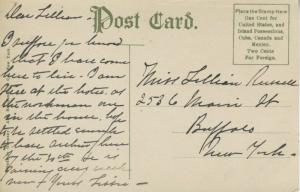 Dear Lillian
Post Card.
Place the Stamp Here
One Cent for
United States, and
Island Possessions,
Cuba, Canada and
Mexico.
Two Cents
For Foreign.
I suppose you know
that I have come
here to live. I am
here at the hotel, as
the workmen are
in the house, hope
to be settled enough
to have
by the 20th. He is
now & Yours Libbie -
Miss Lillian Russell
2536 Main St
Buffalo
New York -